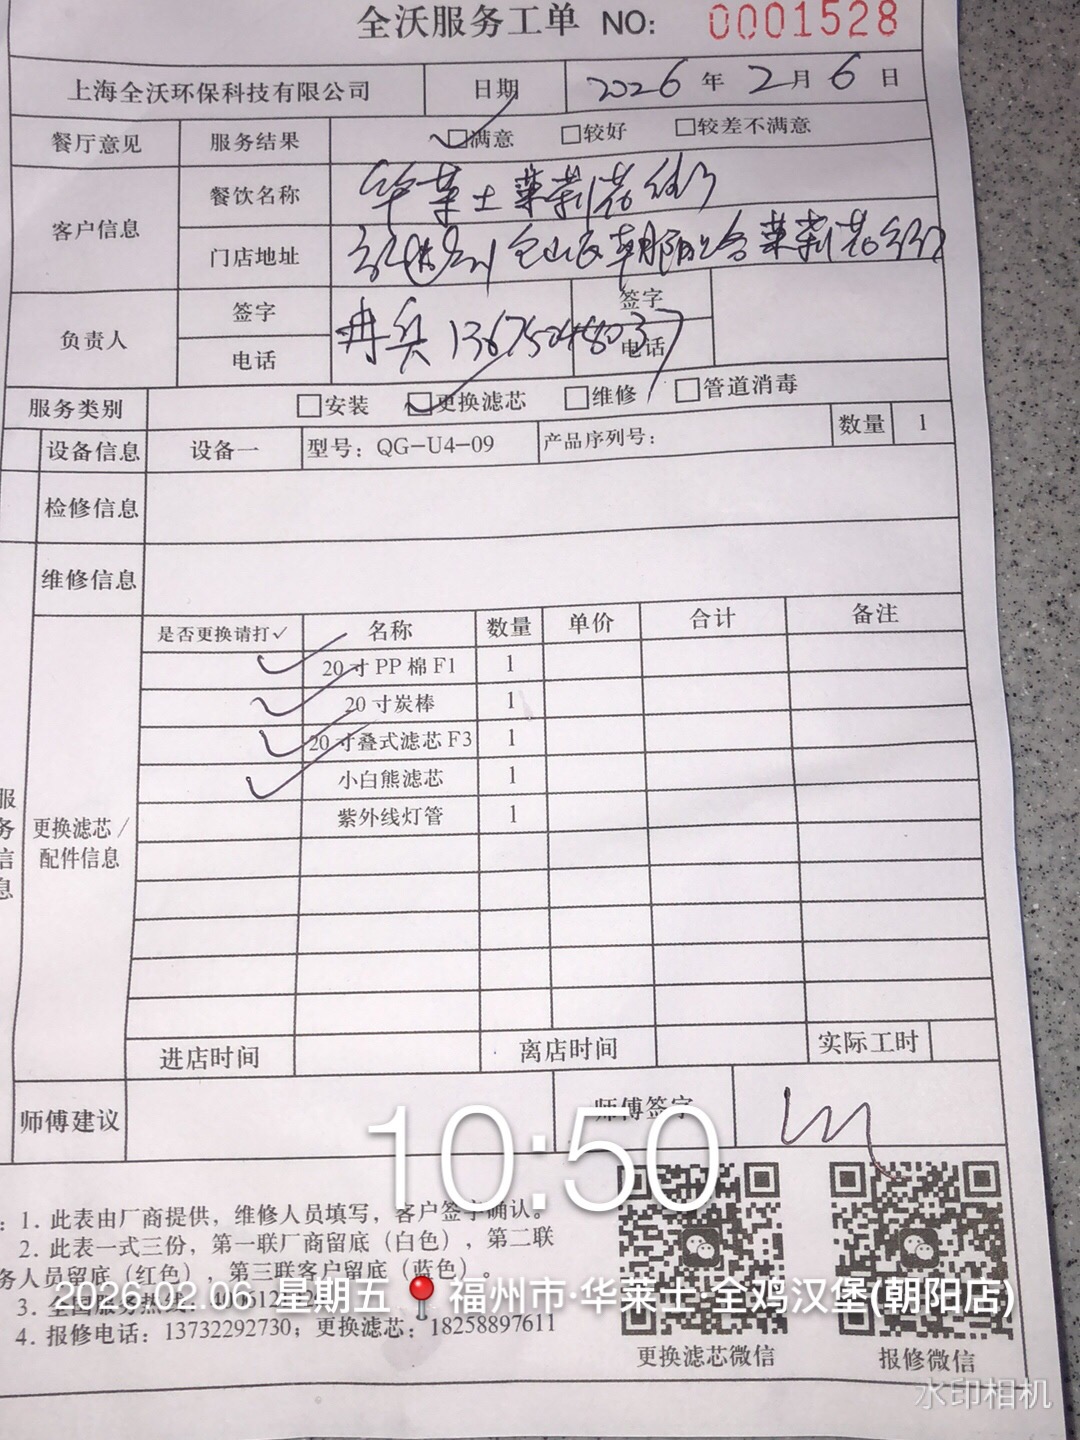 全沃服务工单 NO: 0001528
上海全沃环保科技有限公司 日期 2026年2月6日
餐厅意见 服务结果 ☑满意 □较好 □较差不满意
客户信息 餐饮名称 华莱士茉莉花街
门店地址 仓山区朝阳 茉莉花街
负责人 签字 冉兵 签字
电话 13675048037 电话
服务类别 □安装 ☑更换滤芯 □维修 □管道消毒
设备信息 设备一 型号：QG-U4-09 产品序列号： 数量 1
检修信息
维修信息
是否更换请打✓ 名称 数量 单价 合计 备注
✓ 20寸PP棉F1 1
✓ 20寸炭棒 1
✓ 20寸叠式滤芯F3 1
✓ 小白熊滤芯 1
紫外线灯管 1
服务信息
更换滤芯/
配件信息
进店时间 离店时间 实际工时
师傅建议 师傅签字
10:50
：1. 此表由厂商提供，维修人员填写，客户签字确认。
2. 此表一式三份，第一联厂商留底（白色），第二联
务人员留底（红色），第三联客户留底（蓝色）。
3. 全国服务热线：
2026.02.06 星期五 福州市·华莱士·全鸡汉堡(朝阳店)
4. 报修电话：13732292730；更换滤芯：18258897611
更换滤芯微信 报修微信
水印相机